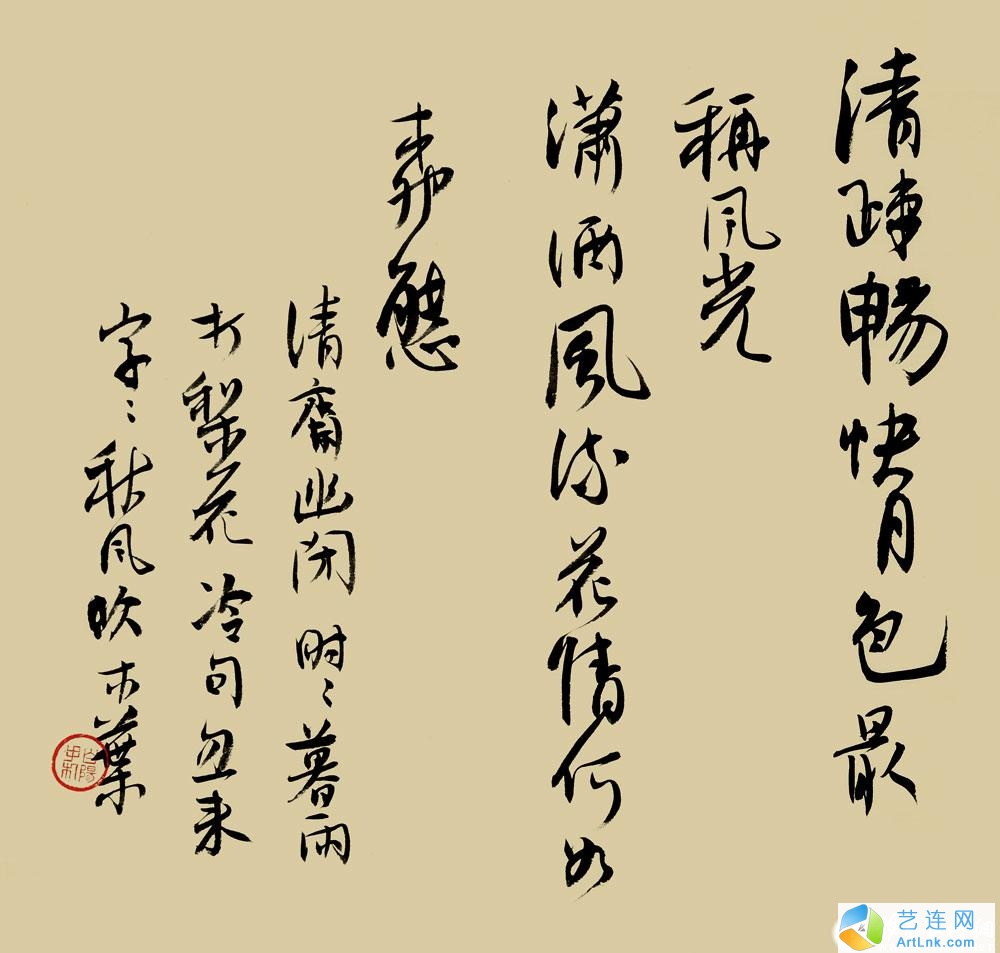 清疎暢快月色最
稱風光
瀟洒風流花情何如
桺態
清齋幽閉時〻暮雨
打梨花冷句忽来
字〻秋風吹木葉
艺连网
ArtLnk.com